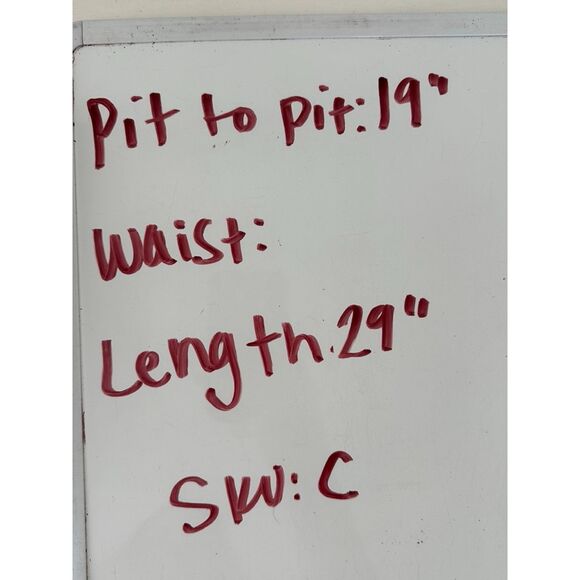 Pit to pit: 19"
Waist:
Length. 29"
SKU: C